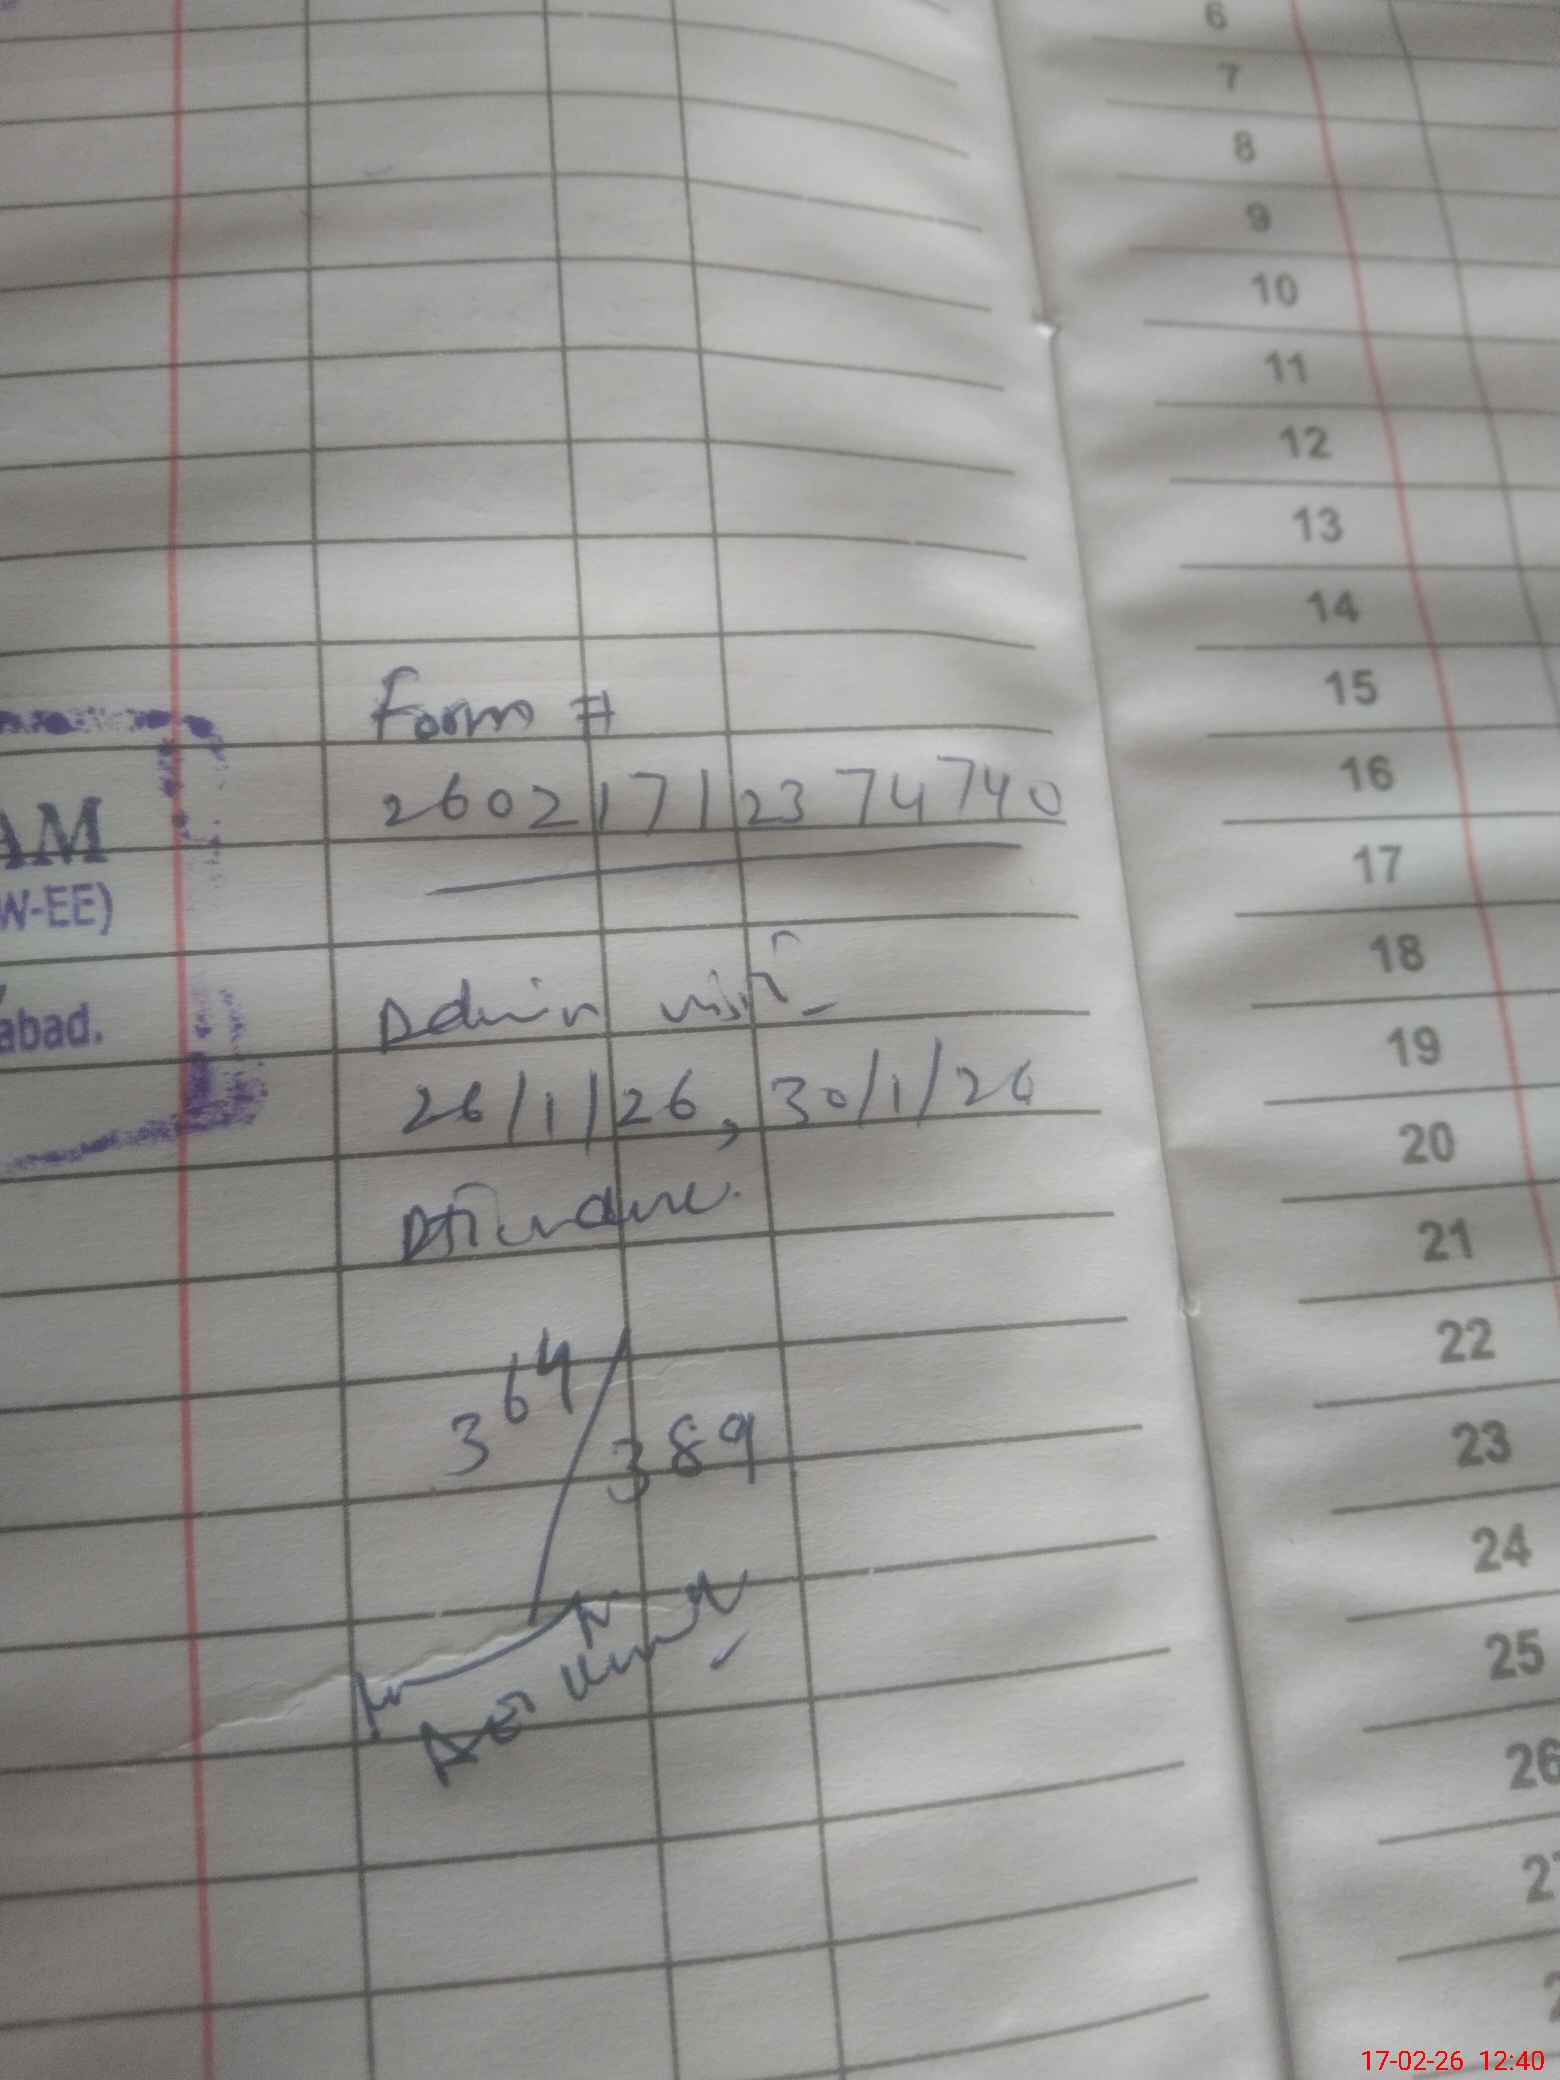 Form #
260217123 74740
Admin visit
26/1/26, 30/1/26
Attendance.
364/389
AM
W-EE)
abad.
6
7
8
9
10
11
12
13
14
15
16
17
18
19
20
21
22
23
24
25
26
17-02-26 12:40